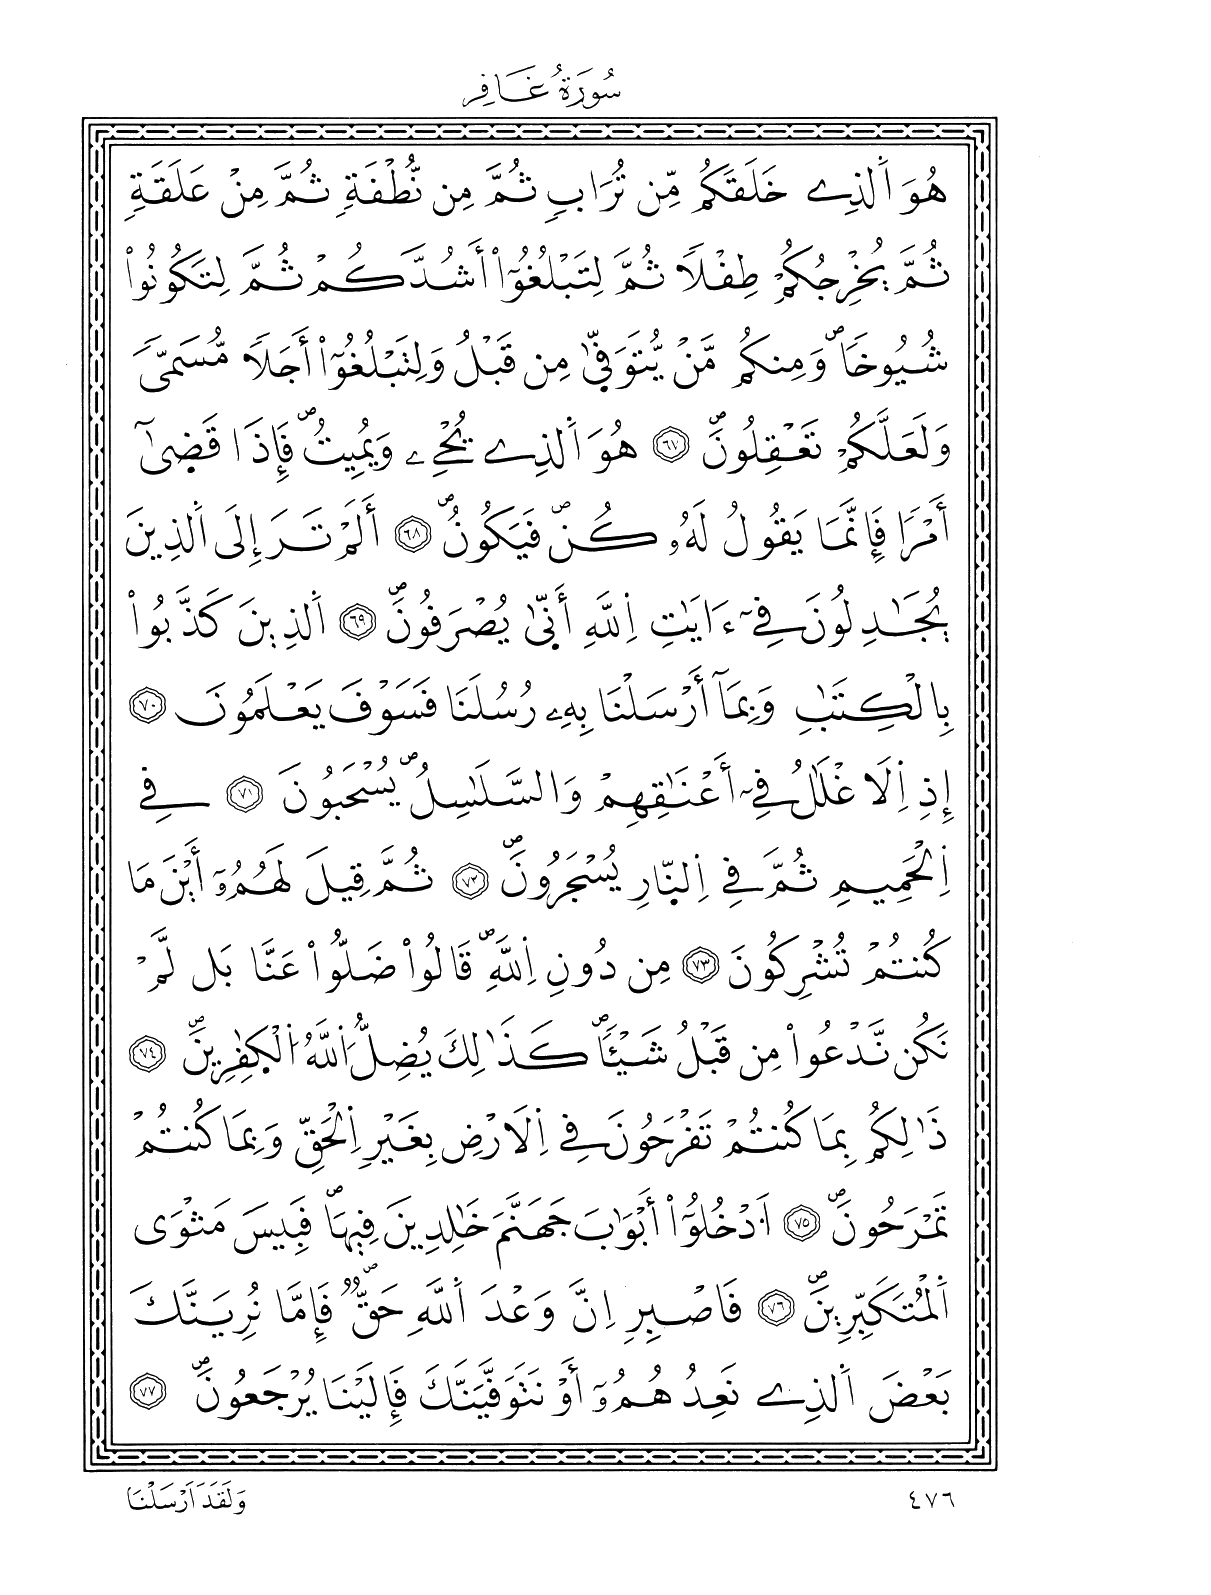 سُورَةُ غَافِرٍ
هُوَ اَ۬لذِے خَلَقَكُم مِّن تُرَابٖ ثُمَّ مِن نُّطْفَةٖ ثُمَّ مِنْ عَلَقَةٖ
ثُمَّ يُخْرِجُكُمْ طِفْلاٗ ثُمَّ لِتَبْلُغُوٓاْ أَشُدَّكُمْ ثُمَّ لِتَكُونُواْ
شُيُوخاٗۖ وَمِنكُم مَّنْ يُّتَوَفّ۪ىٰ مِن قَبْلُ وَلِتَبْلُغُوٓاْ أَجَلاٗ مُّسَمّىٗ
وَلَعَلَّكُمْ تَعْقِلُونَۖ ٦٧ هُوَ اَ۬لذِے يُحْيِۦ وَيُمِيتُۖ فَإِذَا قَض۪ىٰٓ
أَمْراٗ فَإِنَّمَا يَقُولُ لَهُۥ كُنۖ فَيَكُونُۖ ٦٨ أَلَمْ تَرَ إِلَى اَ۬لذِينَ
يُجَٰدِلُونَ فِےٓ ءَايَٰتِ اِ۬للَّهِ أَنّ۪ىٰ يُصْرَفُونَۖ ٦٩ اَ۬لذِينَ كَذَّبُواْ
بِالْكِتَٰبِ وَبِمَآ أَرْسَلْنَا بِهِۦ رُسُلَنَا فَسَوْفَ يَعْلَمُونَ ٧٠
إِذِ اِ۬لَاغْلَٰلُ فِےٓ أَعْنَٰقِهِمْ وَالسَّلَٰسِلُۖ يُسْحَبُونَ ٧١ فِے
اِ۬لْحَمِيمِ ثُمَّ فِے اِ۬لنّ۪ارِ يُسْجَرُونَۖ ٧٢ ثُمَّ قِيلَ لَهُمُۥٓ أَيْنَ مَا
كُنتُمْ تُشْرِكُونَ ٧٣ مِن دُونِ اِ۬للَّهِۖ قَالُواْ ضَلُّواْ عَنَّا بَل لَّمْ
نَكُن نَّدْعُواْ مِن قَبْلُ شَيْـٔاٗۖ كَذَٰلِكَ يُضِلُّ اُ۬للَّهُ اُ۬لْكٰ۪فِرِينَۖ ٧٤
ذَٰلِكُم بِمَا كُنتُمْ تَفْرَحُونَ فِے اِ۬لَارْضِ بِغَيْرِ اِ۬لْحَقِّ وَبِمَا كُنتُمْ
تَمْرَحُونَۖ ٧٥ اَ۟دْخُلُوٓاْ أَبْوَٰبَ جَهَنَّمَ خَٰلِدِينَ فِيهَاۖ فَبِيسَ مَثْوَى
اَ۬لْمُتَكَبِّرِينَۖ ٧٦ فَاصْبِرِ اِنَّ وَعْدَ اَ۬للَّهِ حَقّٞۖ فَإِمَّا نُرِيَنَّكَ
بَعْضَ اَ۬لذِے نَعِدُهُمُۥٓ أَوْ نَتَوَفَّيَنَّكَ فَإِلَيْنَا يُرْجَعُونَۖ ٧٧
وَلَقَدَ اَرْسَلْنَا
٤٧٦